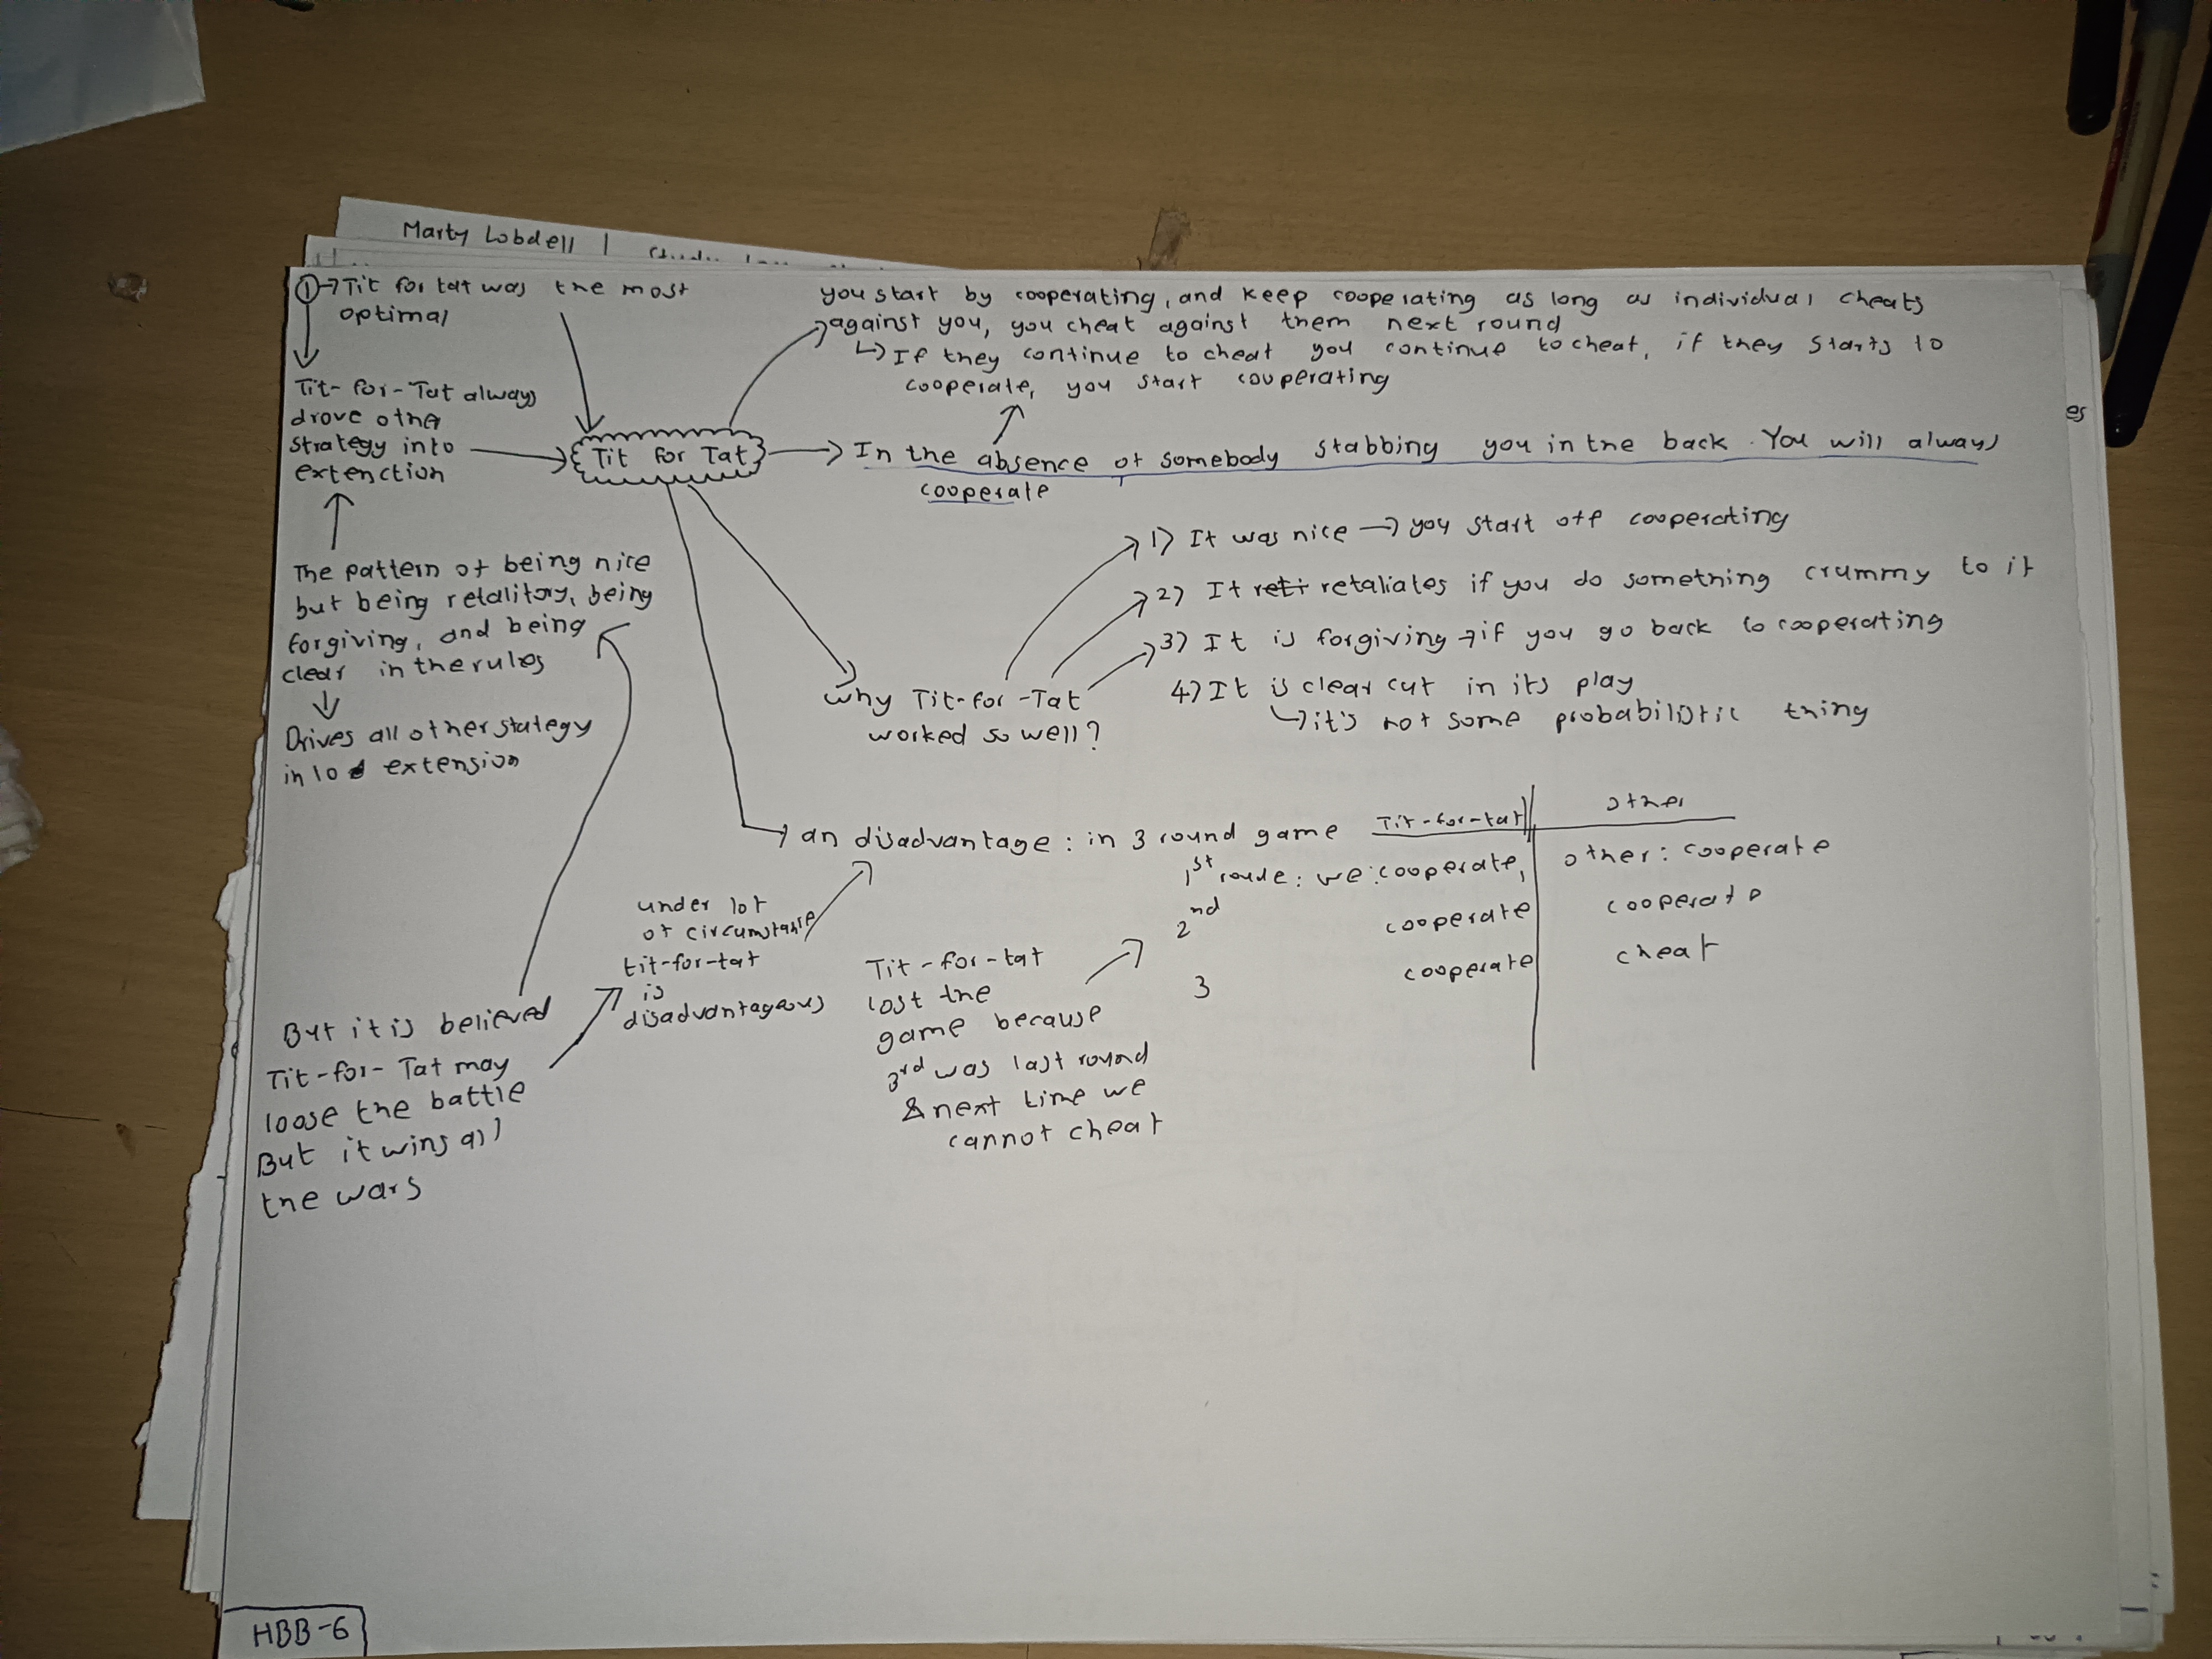 Marty Lobdell |
① → Tit for tat was the most
optimal
Tit-for-Tat always
drove other
strategy into
extenction
The pattern of being nice
but being retalitory, being
forgiving, and being
clear in the rules
Drives all other stategy
into extension
But it is believed
Tit-for-Tat may
loose the battle
But it wins all
the wars
Tit for Tat
you start by cooperating, and keep cooperating as long as individual cheats
against you, you cheat against them next round
↳ If they continue to cheat you continue to cheat, if they starts to
cooperate, you start couperating
In the absence of somebody stabbing you in the back. You will always
cooperate
Why Tit-for-Tat
worked so well?
1) It was nice → you start off cooperating
2) It reti retaliates if you do something crummy to it
3) It is forgiving → if you go back to cooperating
4) It is clear cut in its play
↳ it's not some probabilistic thing
an disadvantage: in 3 round game
Tit-for-tat other
1st roude: we: cooperate, other: cooperate
2nd cooperate cooperate
3 cooperate cheat
under lot
of circumstance
tit-for-tat
is
disadvantageous
Tit-for-tat
lost the
game because
3rd was last round
& next time we
cannot cheat
es
HBB-6